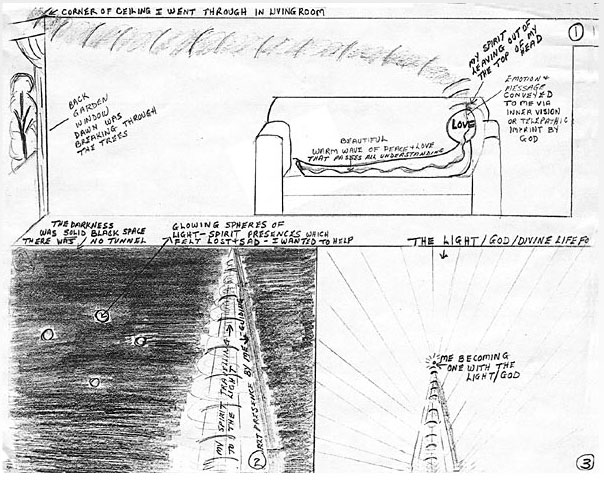 CORNER OF CEILING I WENT THROUGH IN LIVINGROOM
1
MY SPIRIT
LEAVING OUT OF
THE TOP OF MY
HEAD
EMOTION &
MESSAGE
CONVEYED
TO ME VIA
INNER VISION
OR TELEPATHIC
IMPRINT BY
GOD
LOVE
BACK
GARDEN
WINDOW
DAWN WAS
BREAKING THROUGH
THE TREES
BEAUTIFUL
WARM WAVE OF PEACE & LOVE
THAT PASSES ALL UNDERSTANDING
THE DARKNESS
WAS SOLID BLACK SPACE
THERE WAS NO TUNNEL
GLOWING SPHERES OF
LIGHT-SPIRIT PRESENCES WHICH
FELT LOST & SAD - I WANTED TO HELP
MY SPIRIT
TO THE
PRESENCE BY ME
2
THE LIGHT/GOD/DIVINE LIFE FO
ME BECOMING
ONE WITH THE
LIGHT/GOD
3